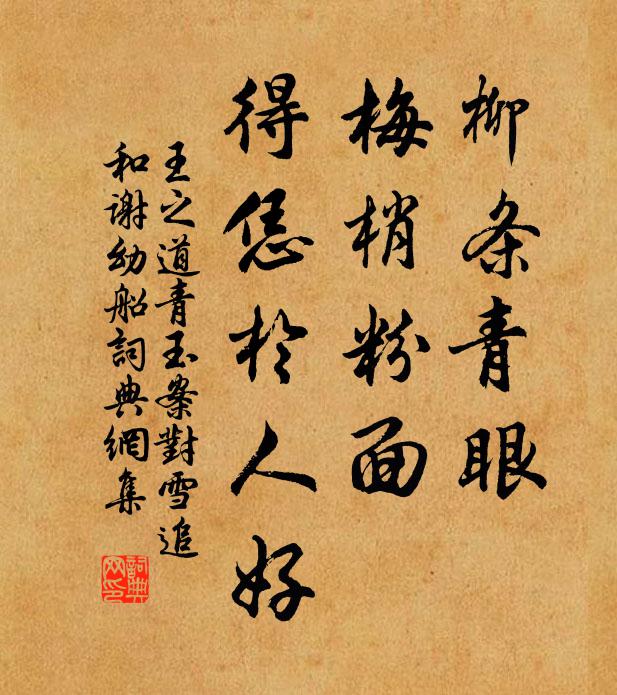 柳条青眼
梅梢粉面
得恁於人好
王之道青玉案對雪追
和谢幼船詞典網集
詞典
网印